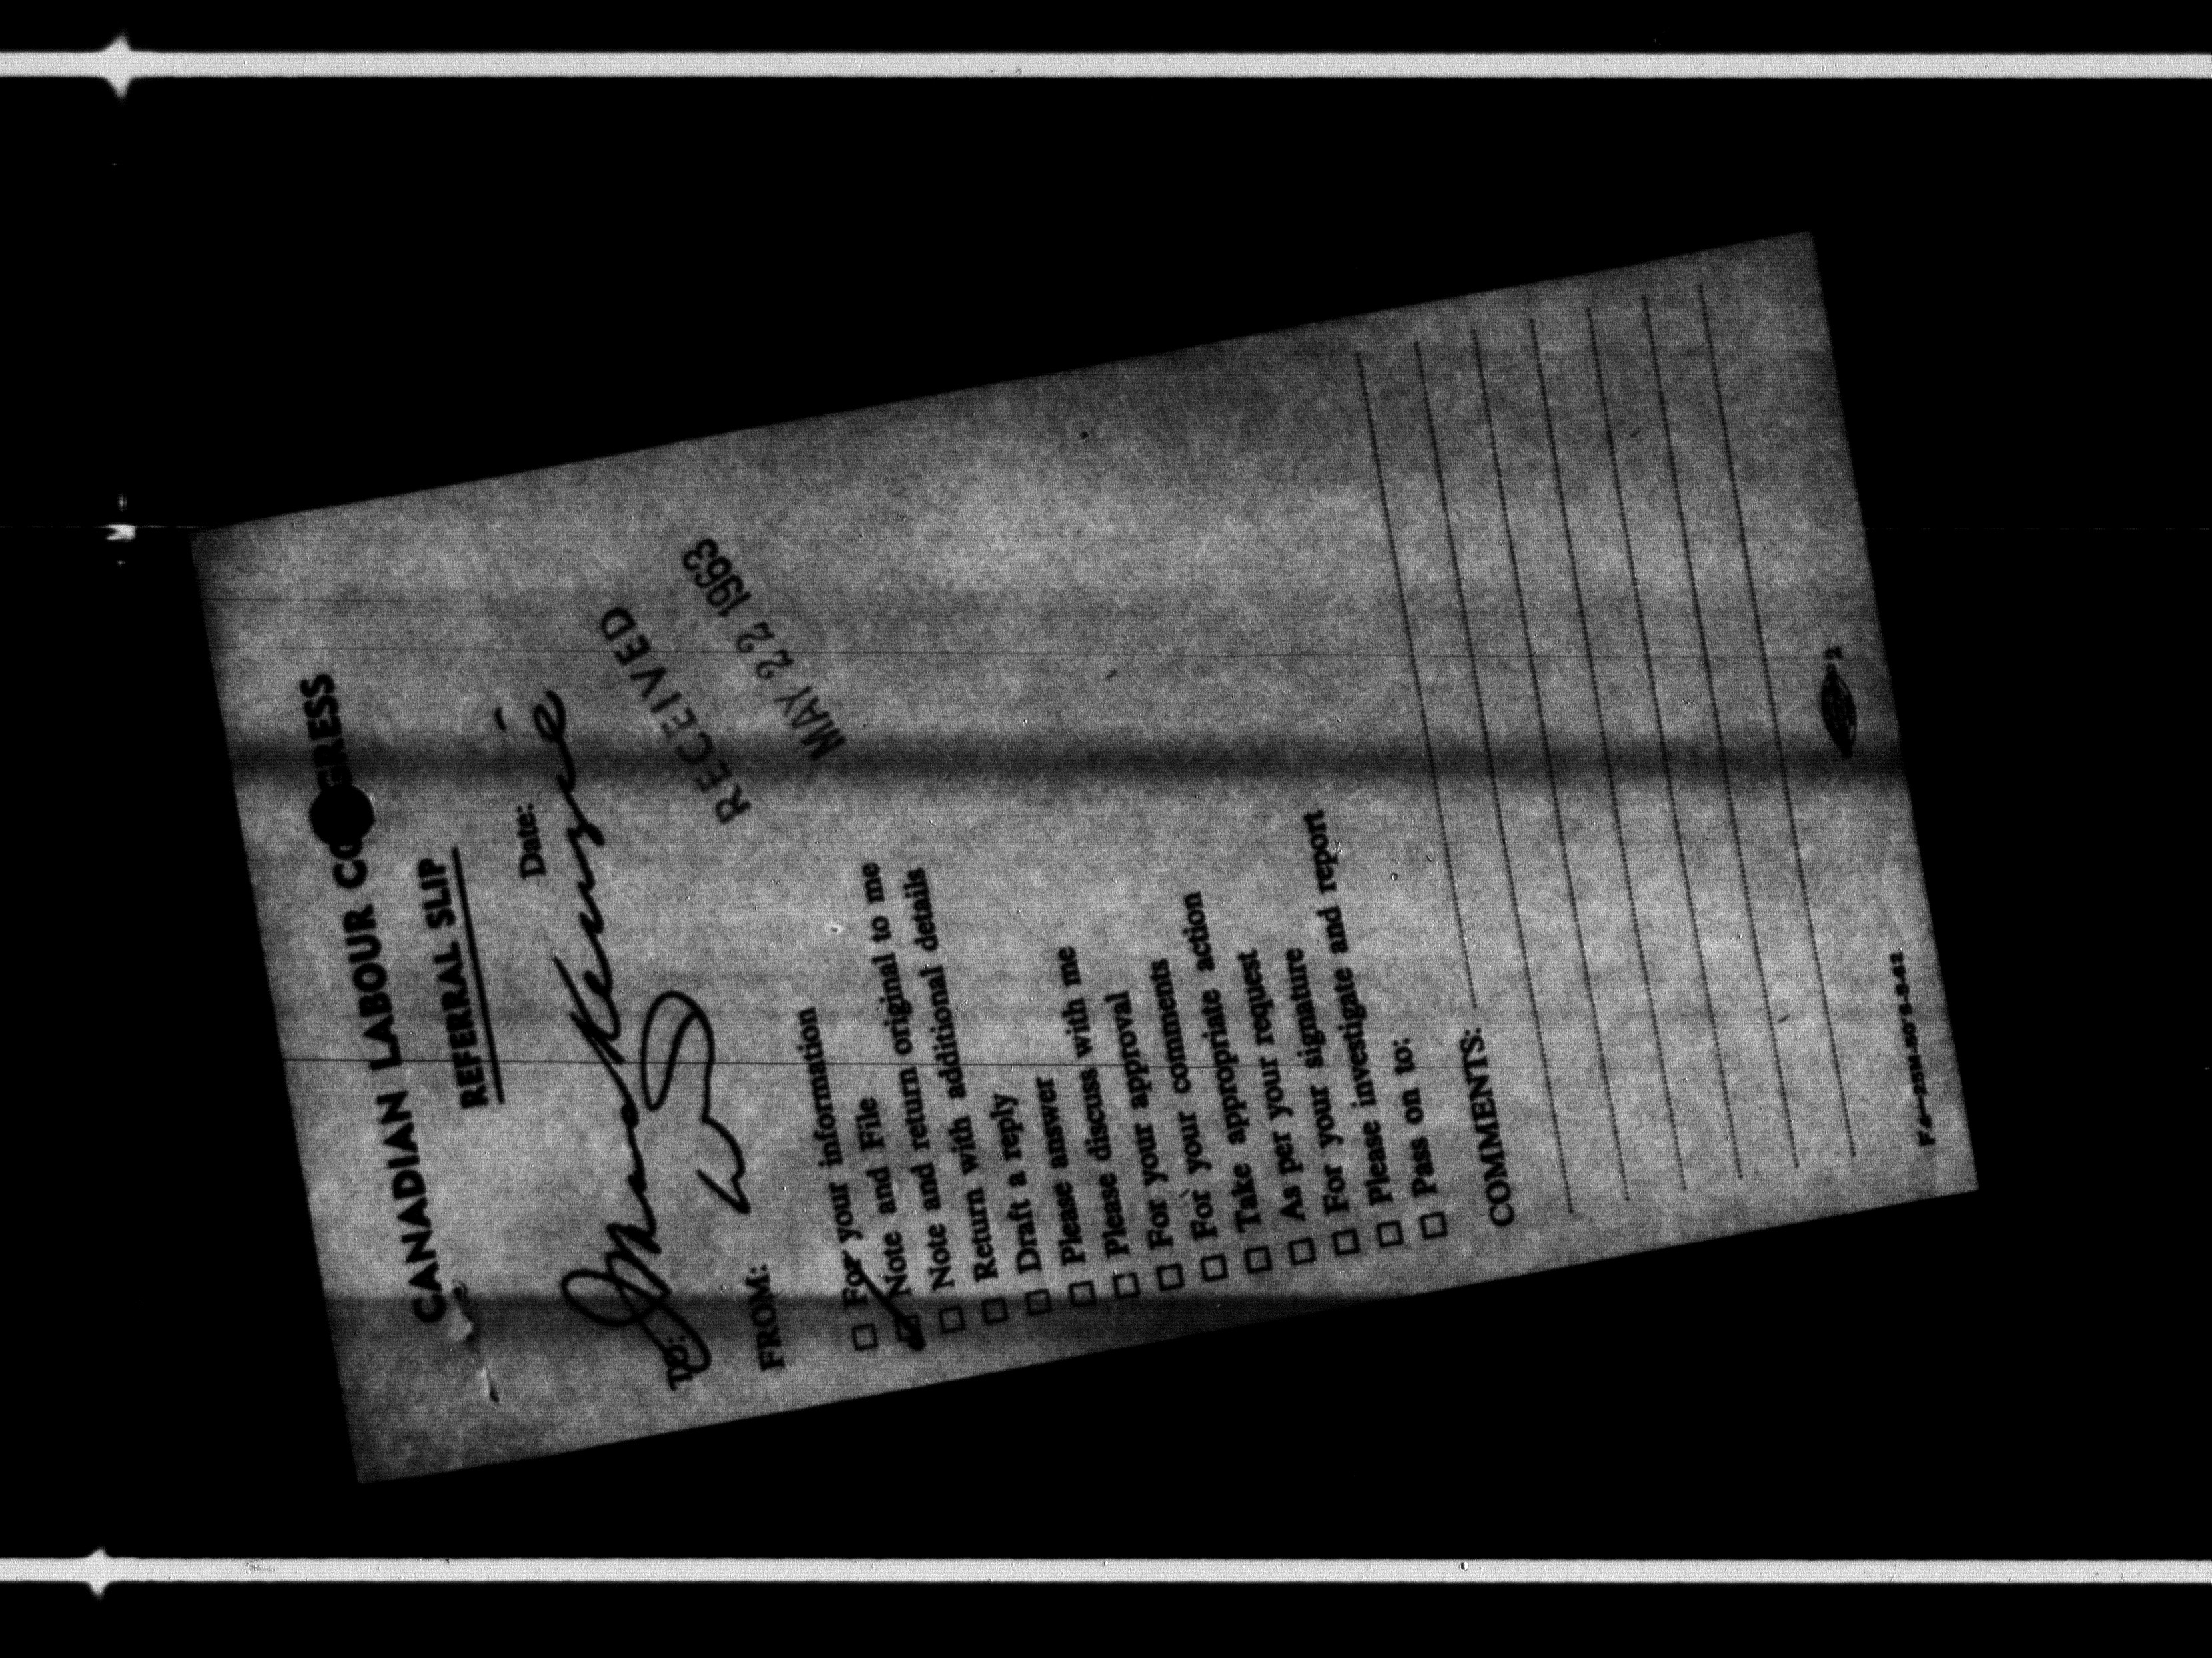 CANADIAN LABOUR CONGRESS
REFERRAL SLIP
Date:
TO:
FROM:
RECEIVED
MAY 22 1963
☐ For your information
☑ Note and File
☐ Note and return original to me
☐ Return with additional details
☐ Draft a reply
☐ Please answer
☐ Please discuss with me
☐ For your approval
☐ For your comments
☐ For your appropriate action
☐ Take appropriate
☐ As per your request
☐ For your signature
☐ Please investigate and report
☐ Pass on to:
COMMENTS: